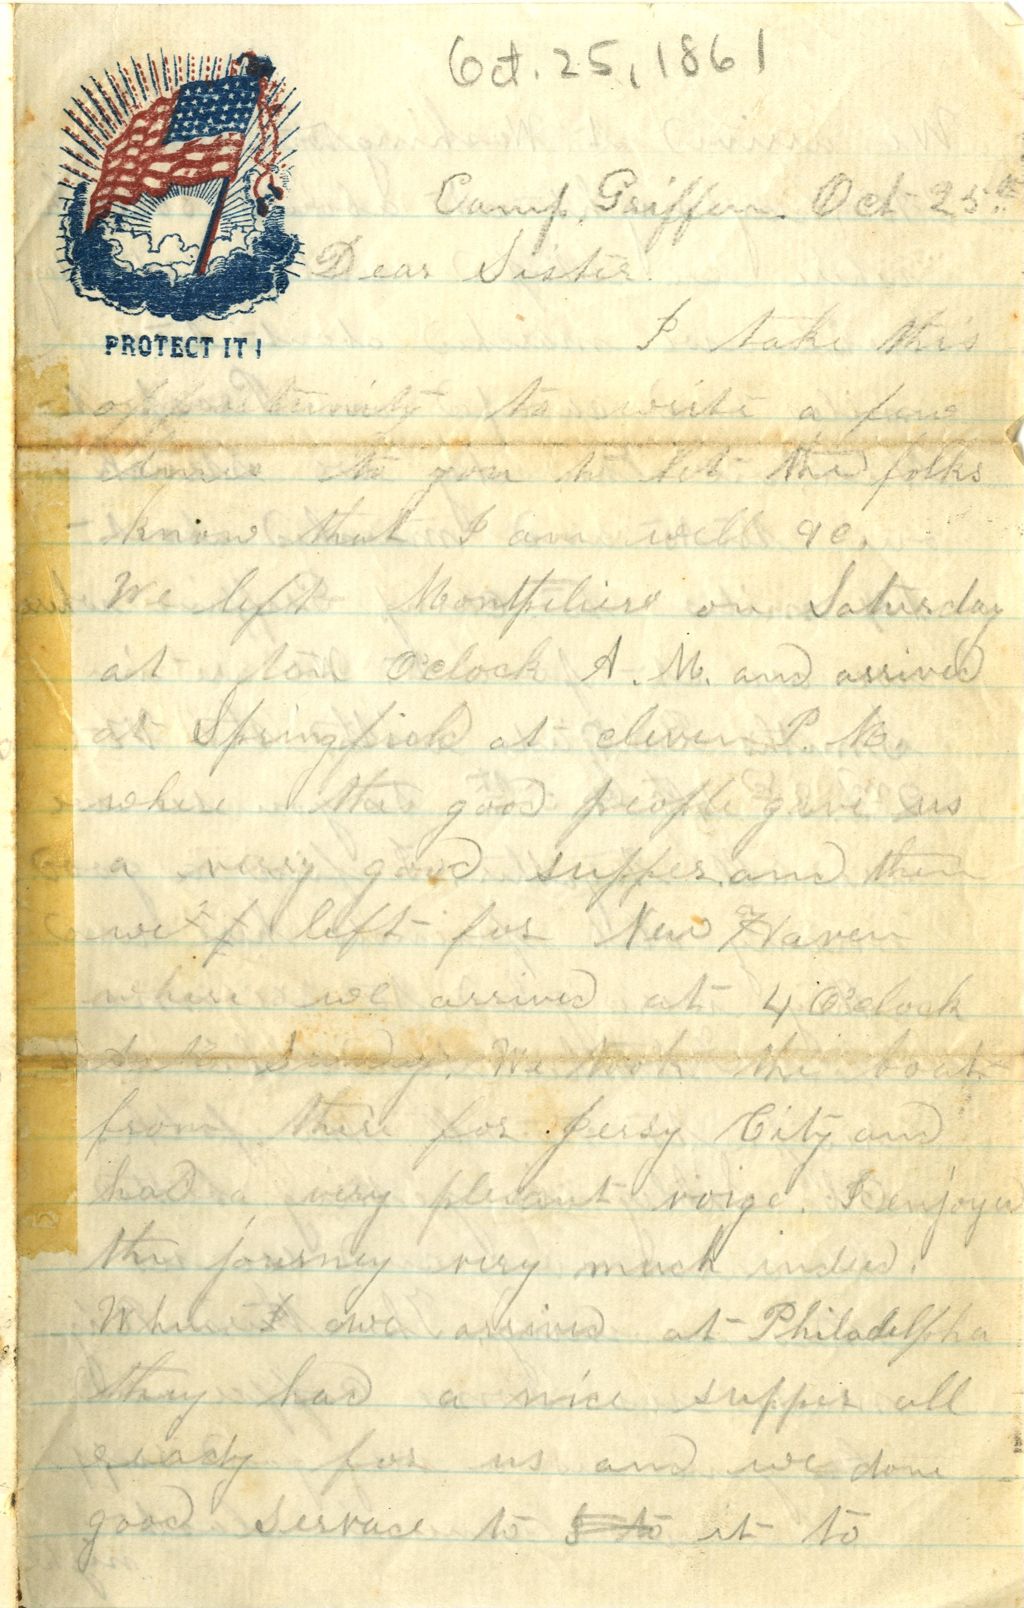 Oct. 25, 1861
Camp, Griffin. Oct 25th
Dear Sister.
PROTECT IT!
I take this
oppertunity to write a few
lines to you to let the folks
know that I am well &c.
We left Montpelier on Saturday
at ten O'clock A. M. and arrived
at Springfield at eleven P. M.
where the good people gave us
a very good supper and then
we left for New Haven
where we arrived at 4 O'clock
Sunday. We took the boat
from there for Jersy City and
had a very plesant voige. I enjoyed
the journey very much indeed.
When we arrived at Philadelpha
they had a nice supper all
ready for us and we done
good servace to it to